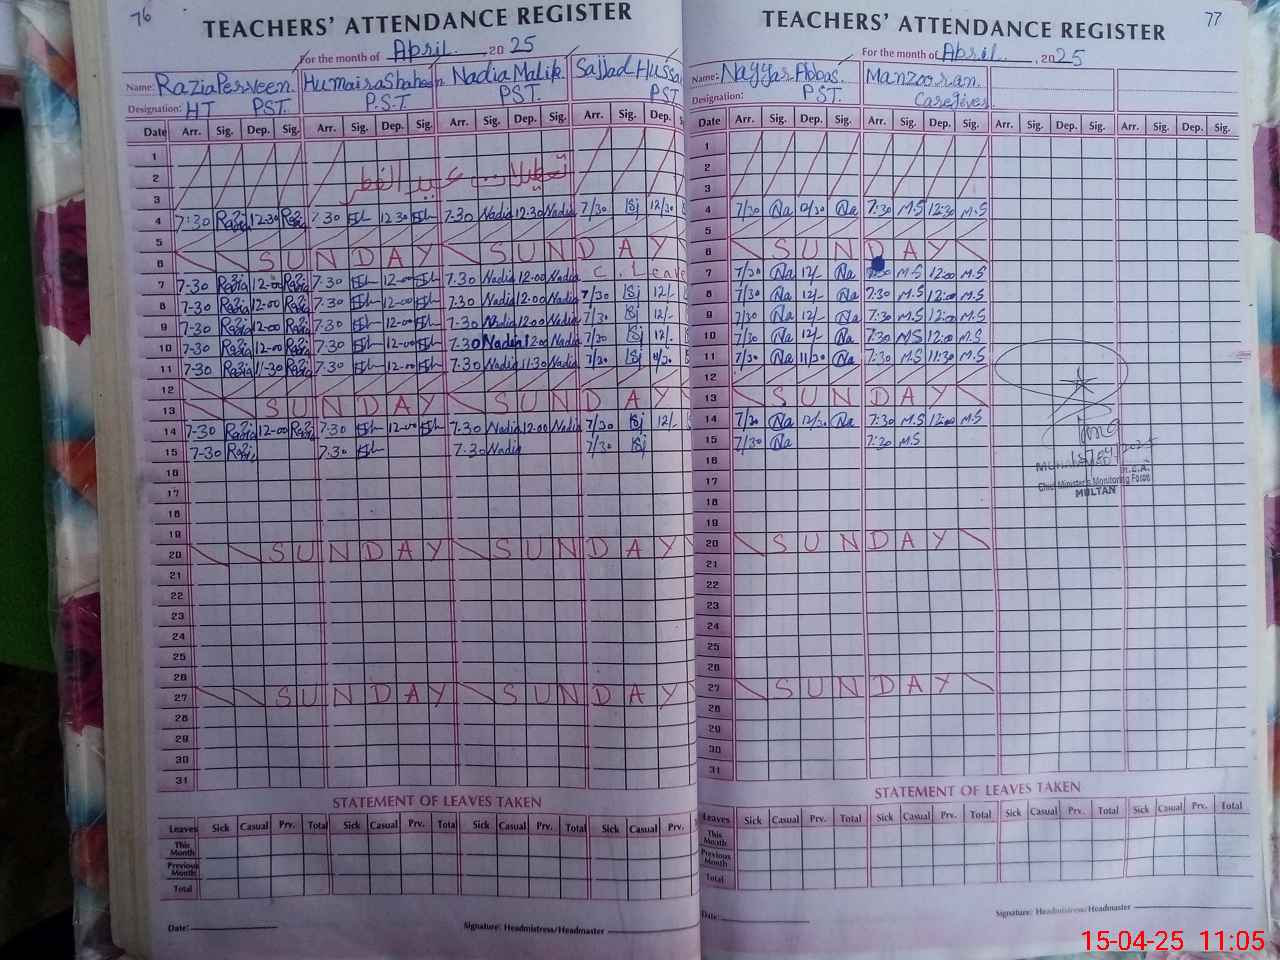 76
TEACHERS' ATTENDANCE REGISTER
For the month of April 2025
Name: Razia Perveen. Humaira Shaheen Nadia Malik. Sajjad Hussa
Designation: HT PST. P.S.T. PST. PST
Date Arr. Sig. Dep. Sig. Arr. Sig. Dep. Sig. Arr. Sig. Dep. Sig. Arr. Sig. Dep. S
1
2 تعطیلات عید الفطر
3
4 7:30 Razia 12-30 Razia 7.30 12 30 7-30 Nadia 12-30 Nadia 7/30 Sj 12/30
5
6 SUNDAY SUNDAY
7 7-30 Razia 12-00 Razia 7.30 12-00 7.30 Nadia 12-00 Nadia C. Leave
8 7-30 Razia 12-00 Razia 7:30 12-00 7-30 Nadia 12.00 Nadia 7/30 Sj 12/-
9 7-30 Razia 12-00 Razia 7:30 12-00 7-30 Nadia 12.00 Nadia 7/30 Sj 12/-
10 7-30 Razia 12-00 Razia 7:30 12-00 7.30 Nadia 12.00 Nadia 7/30 Sj 12/-
11 7-30 Razia 11-30 Razia 7:30 12-00 7-30 Nadia 11.30 Nadia 7/30 Sj 11/30
12
13 SUNDAY SUNDAY
14 7-30 Razia 12-00 Razia 7:30 12-00 7-30 Nadia 12.00 Nadia 7/30 Sj 12/-
15 7-30 Razia 7:30 7-30 Nadia 7/30 Sj
16
17
18
19
20 SUNDAY SUNDAY
21
22
23
24
25
26
27 SUNDAY SUNDAY
28
29
30
31
STATEMENT OF LEAVES TAKEN
Leaves Sick Casual Prv. Total Sick Casual Prv. Total Sick Casual Prv. Total Sick Casual Prv.
This Month
Previous Month
Total
Date: Signature: Headmistress/Headmaster
77
TEACHERS' ATTENDANCE REGISTER
For the month of April, 2025
Name: Nayyar Abbas. Manzooran.
Designation: PST. Caregiver
Date Arr. Sig. Dep. Sig. Arr. Sig. Dep. Sig. Arr. Sig. Dep. Sig. Arr. Sig. Dep. Sig.
1
2
3
4 7/30 Na 12/30 Na 7:30 M.S 12:30 M.S
5
6 SUNDAY
7 7/30 Na 12/- Na 7:30 M.S 12:00 M.S
8 7/30 Na 12/- Na 7:30 M.S 12:00 M.S
9 7/30 Na 12/- Na 7:30 M.S 12:00 M.S
10 7/30 Na 12/- Na 7:30 M.S 12:00 M.S
11 7/30 Na 11/30 Na 7:30 M.S 11:30 M.S
12
13 SUNDAY
14 7/30 Na 12/- Na 7:30 M.S 12:00 M.S
15 7/30 Na 7:30 M.S
16
17
18
19
20 SUNDAY
21
22
23
24
25
26
27 SUNDAY
28
29
30
31
M.E.A.
Chief Minister's Monitoring Force
MULTAN
STATEMENT OF LEAVES TAKEN
Leaves Sick Casual Prv. Total Sick Casual Prv. Total Sick Casual Prv. Total Sick Casual Prv. Total
This Month
Previous Month
Total
Date: Signature: Headmistress/Headmaster
15-04-25 11:05